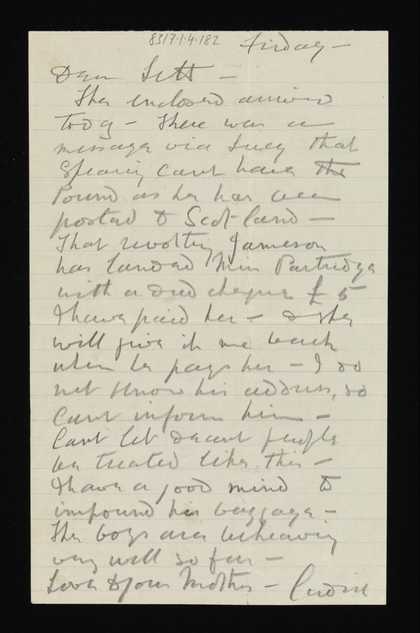 8317.1.4.182
Friday –
Dear Sett –
The enclosed arrived
today – There was a
message via Lucy that
Spearing cant have the
Pound as he has been
posted to Scotland –
That revolting Jameson
has landed Miss Partridge
with a dud cheque £5
I have paid her – & she
will give it me back
when he pays her – I do
not know his address, so
cant inform him –
Cant let decent people
be treated like this –
I have a good mind to
impound his baggage –
The boys are behaving
very well so far –
Love to your Mother –